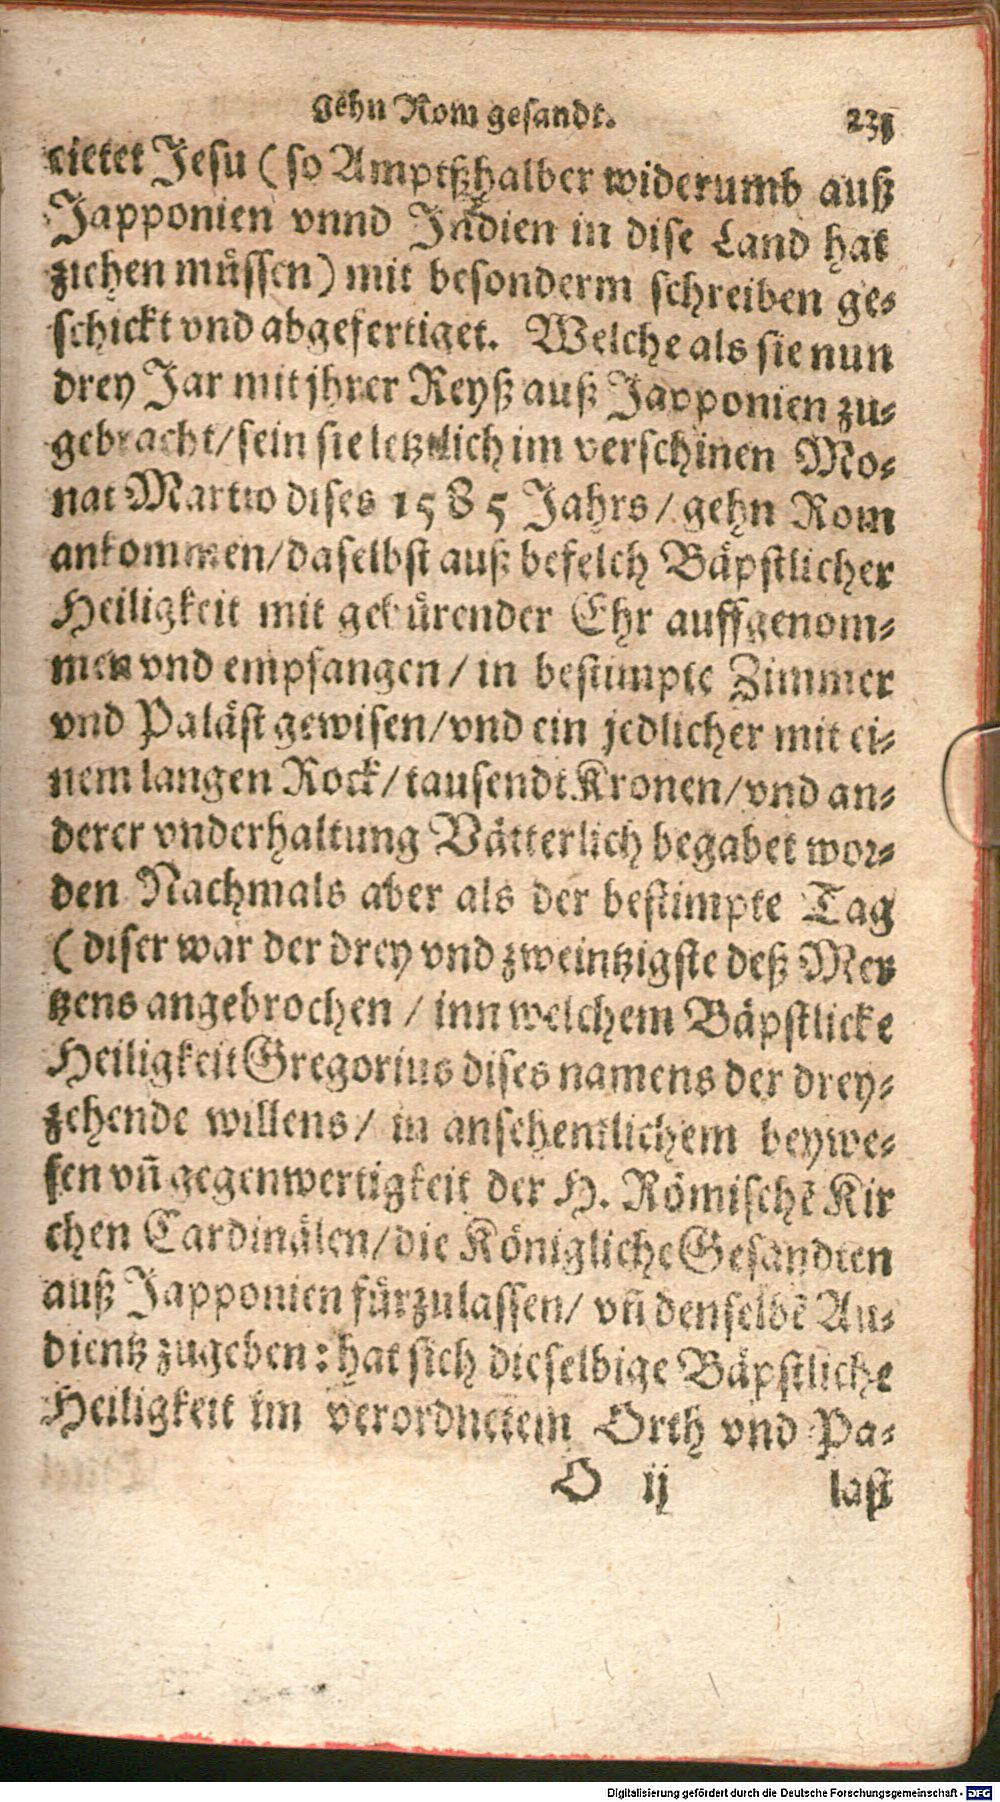 gehn Rom gesandt.
cietet Jesu (so Amptßhalber widerumb auß
Japponien vnnd Indien in dise Land hat
ziehen müssen) mit besonderm schreiben ge-
schickt vnd abgefertiget. Welche als sie nun
drey Jar mit jhrer Reyß auß Japponien zu-
gebracht/ sein sie letztlich im verschinen Mo-
nat Martio dises 1585 Jahrs/ gehn Rom
ankommen/ daselbst auß befelch Bäpstlicher
Heiligkeit mit gebürender Ehr auffgenom-
men vnd empfangen/ in bestimpte Zimmer
vnd Paläst gewisen/ vnd ein jedlicher mit ei-
nem langen Rock/ tausendt Kronen/ vnd an-
derer vnderhaltung Vätterlich begabet wor-
den Nachmals aber als der bestimpte Tag
(diser war der drey vnd zweintzigste deß Mer
tzens angebrochen/ inn welchem Bäpstliche
Heiligkeit Gregorius dises namens der drey-
zehende willens/ in ansehentlichem beywe-
sen vñ gegenwertigkeit der H. Römischē Kir
chen Cardinälen/ die Königliche Gesandten
auß Japponien fürzulassen/ vñ denselbē Au-
dientz zugeben: hat sich dieselbige Bäpstliche
Heiligkeit im verordnetem Orth vnd Pa-
O ij last
Digitalisierung gefördert durch die Deutsche Forschungsgemeinschaft - DFG